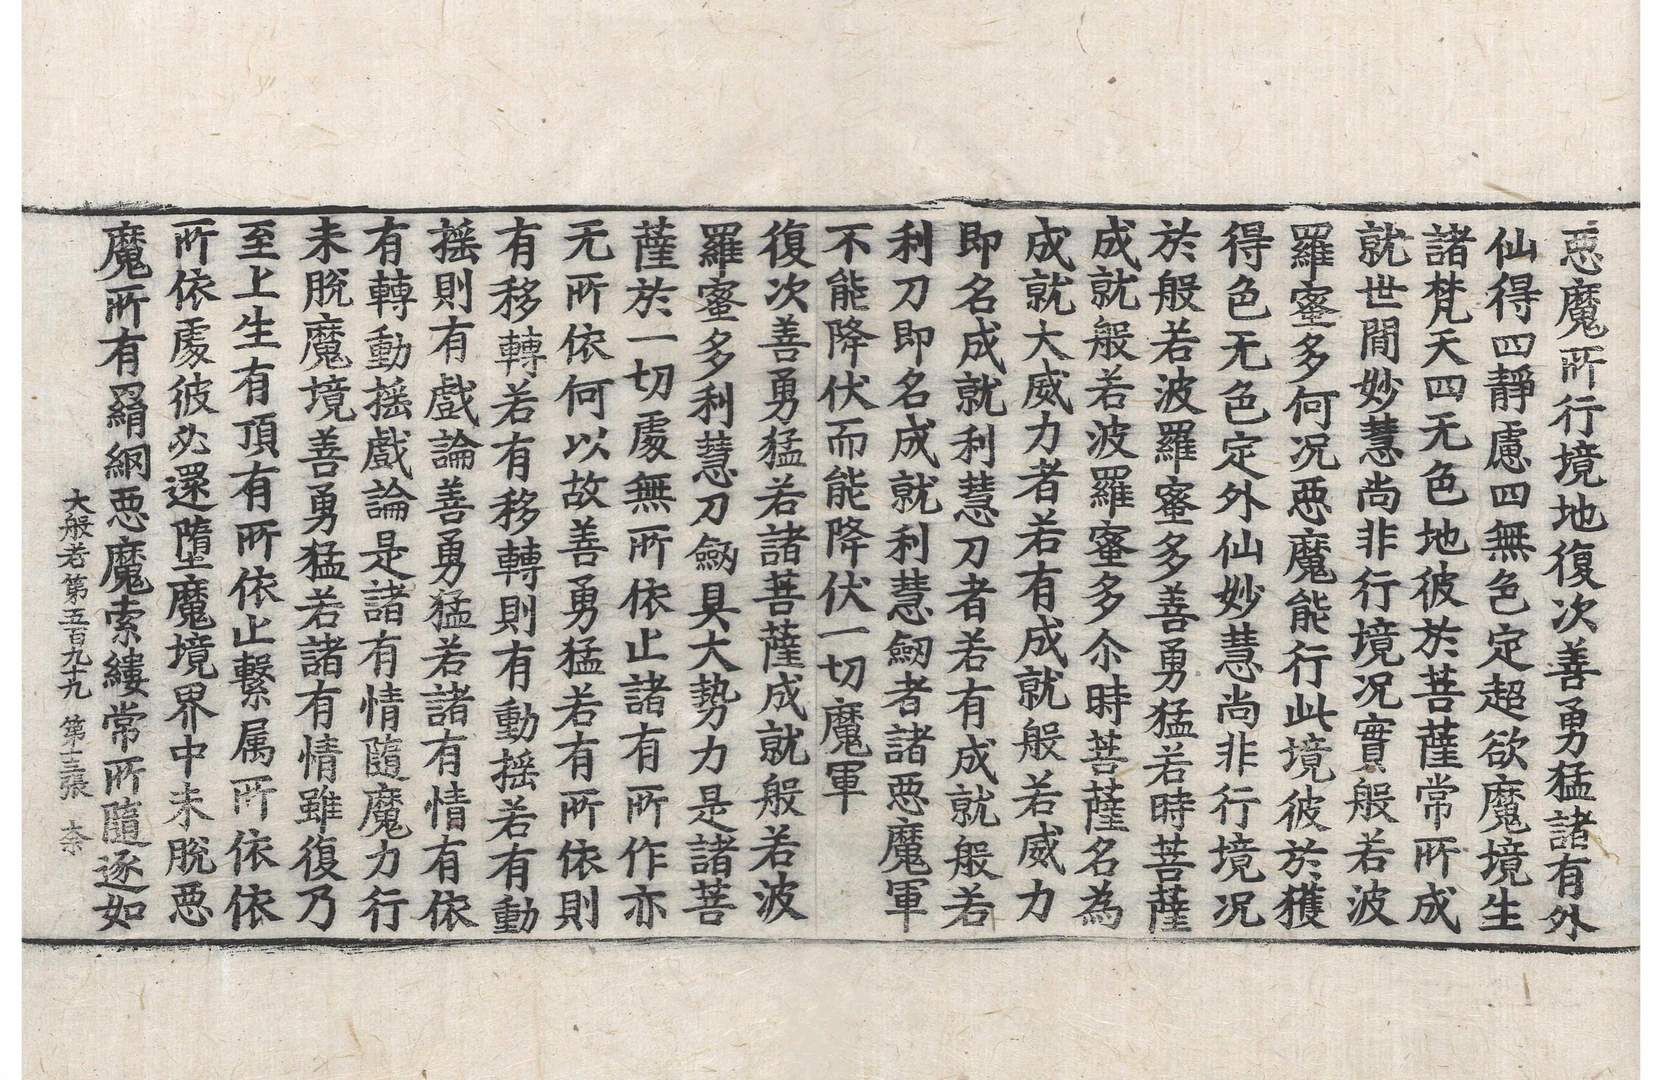 惡魔所行境地復次善勇猛諸有外
仙得四靜慮四無色定超欲魔境生
諸梵天四无色地彼於菩薩常所成
就世間妙慧尚非行境況實般若波
羅蜜多何況惡魔能行此境彼於獲
得色无色定外仙妙慧尚非行境況
於般若波羅蜜多善勇猛若時菩薩
成就般若波羅蜜多尒時菩薩名為
成就大威力者若有成就般若威力
即名成就利慧刀者若有成就般若
利刀即名成就利慧劒者諸惡魔軍
不能降伏而能降伏一切魔軍
復次善勇猛若諸菩薩成就般若波
羅蜜多利慧刀劒具大勢力是諸菩
薩於一切處無所依止諸有所作亦
无所依何以故善勇猛若有所依則
有移轉若有移轉則有動搖若有動
搖則有戲論善勇猛若諸有情有依
有轉動搖戲論是諸有情隨魔力行
未脫魔境善勇猛若諸有情雖復乃
至上生有頂有所依止繫属所依依
所依處彼必還墮魔境界中未脫惡
魔所有羂網惡魔索縷常所隨逐如
大般若第五百九十九 第十三張 柰